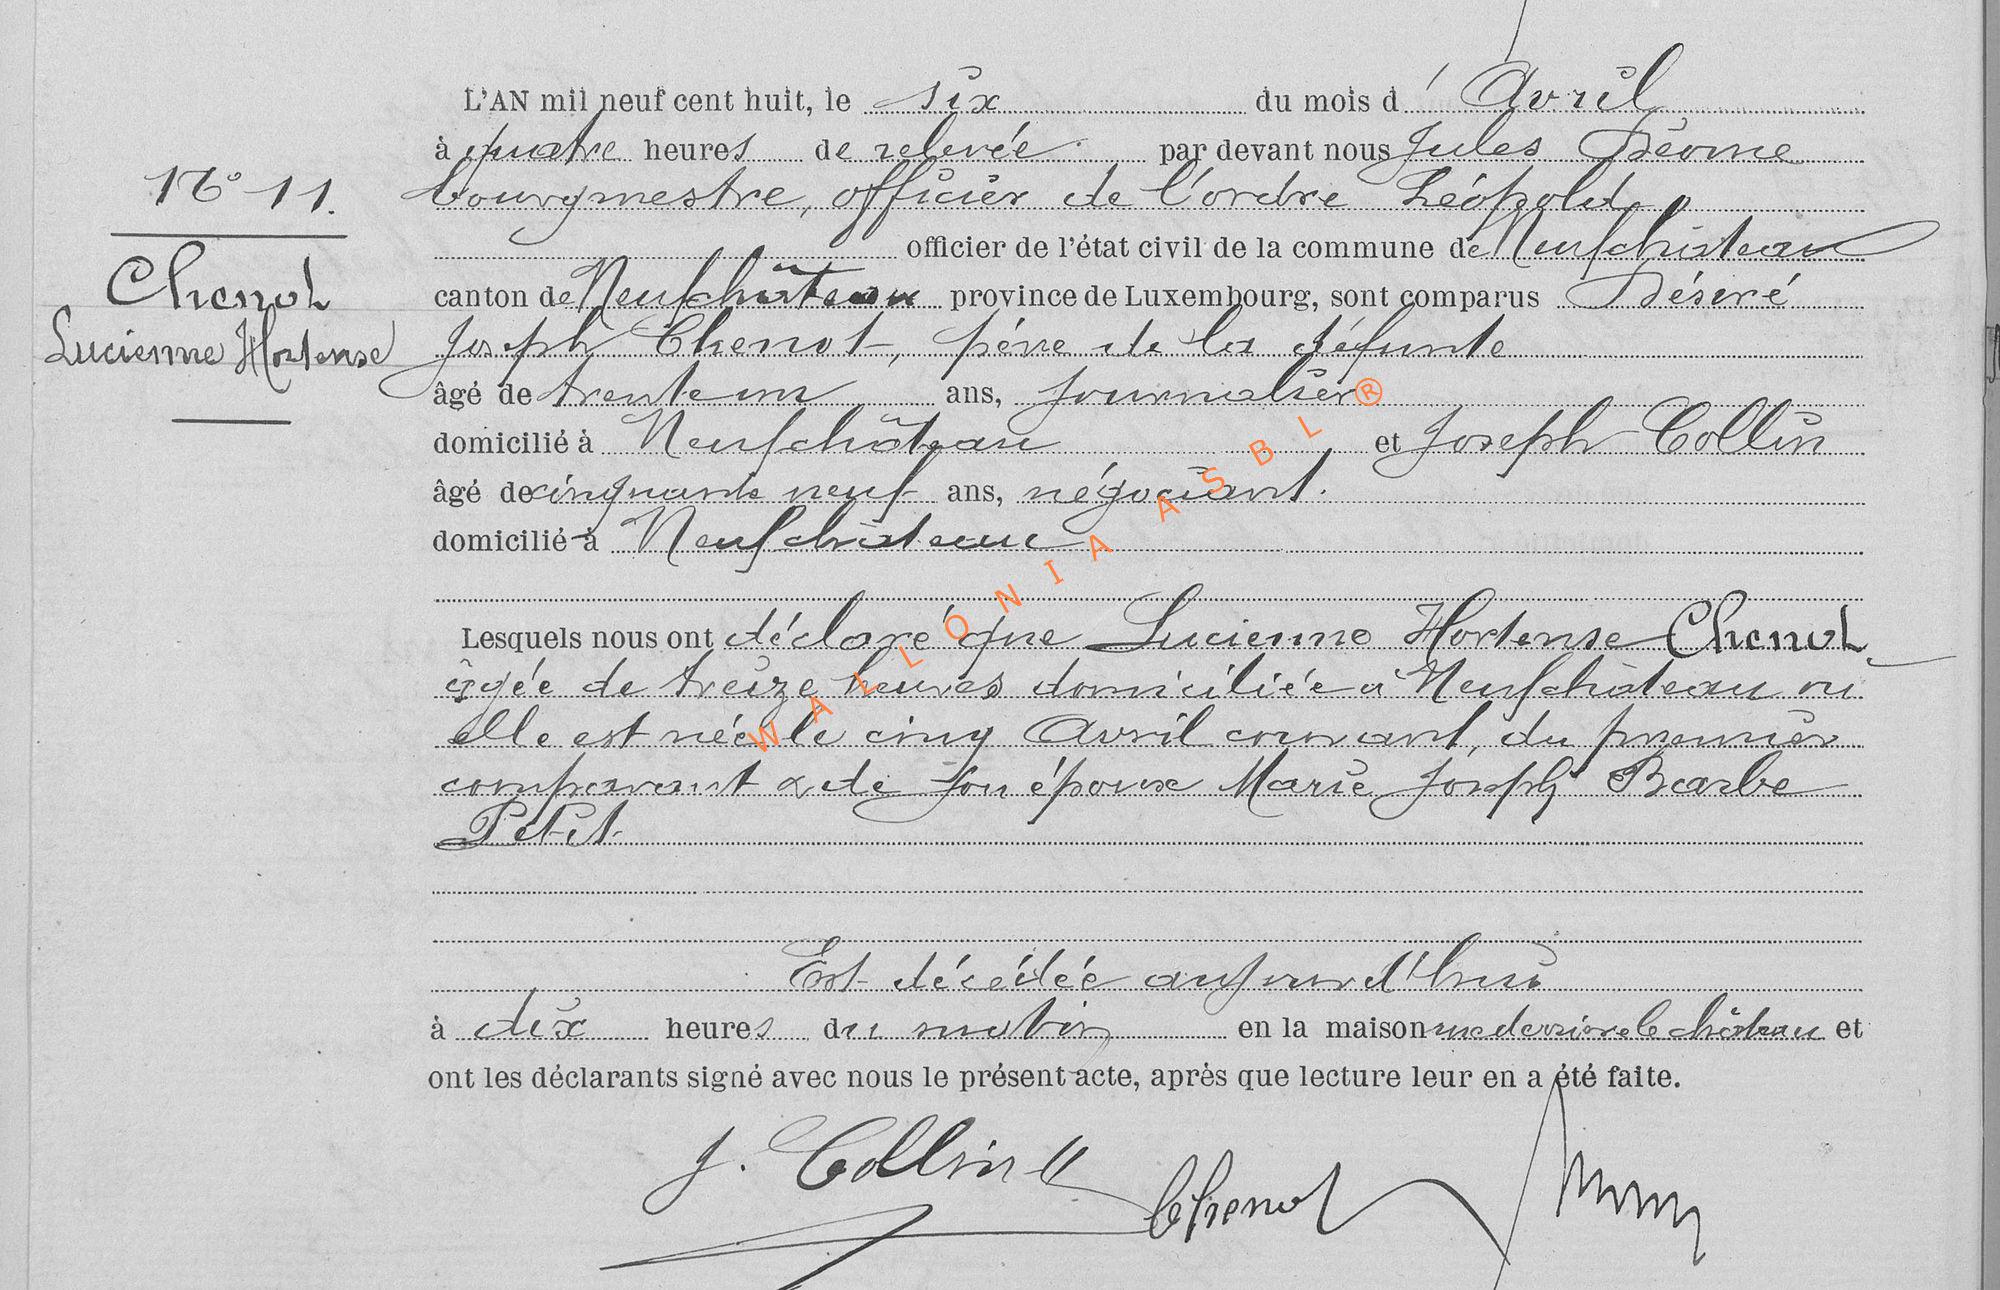 N° 11.
Chenot
Lucienne Hortense
L'AN mil neuf cent huit, le six du mois d'Avril
à quatre heures de relevée par devant nous Jules
bourgmestre, officier de l'ordre Léopold,
officier de l'état civil de la commune de Neufchâteau
canton de Neufchâteau province de Luxembourg, sont comparus Désiré
Joseph Chenot, père de la défunte
âgé de trente un ans, journalier
domicilié à Neufchâteau et Joseph Collin
âgé de cinquante neuf ans, négociant.
domicilié à Neufchâteau
Lesquels nous ont déclaré que Lucienne Hortense Chenot
âgée de treize heures domiciliée à Neufchâteau ou
elle est née le cinq Avril courant, du premier
comparant & de son épouse Marie Joseph Barbe
Petit
Est décédée aujourd'hui
à dix heures du matin en la maison rue derrière le château et
ont les déclarants signé avec nous le présent acte, après que lecture leur en a été faite.
J. Collin
Chenot
WALLONIA ASBL ®